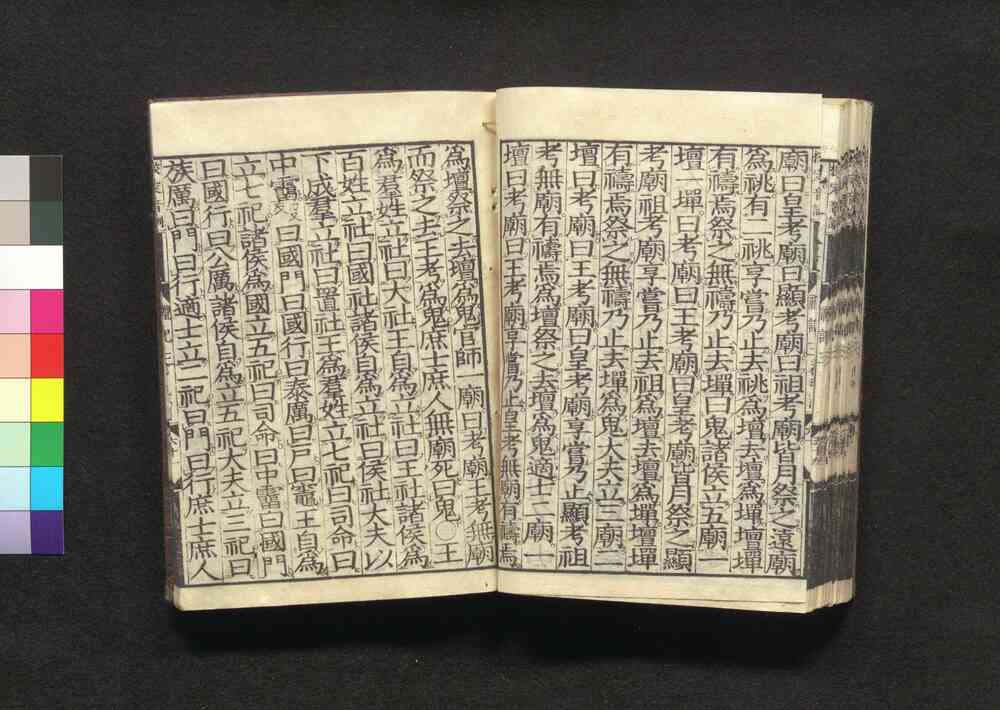 廟曰皇考廟曰顯考廟曰祖考廟皆月祭之遠廟
爲祧有二祧享嘗乃止去祧爲壇去壇爲墠壇墠
有禱焉祭之無禱乃止去墠曰鬼諸侯立五廟一
壇一墠曰考廟曰王考廟曰皇考廟皆月祭之顯
考廟祖考廟享嘗乃止去祖爲壇去壇爲墠壇墠
有禱焉祭之無禱乃止去墠爲鬼大夫立三廟二
壇曰考廟曰王考廟曰皇考廟享嘗乃止顯考祖
考無廟有禱焉爲壇祭之去壇爲鬼適士二廟一
壇曰考廟曰王考廟享嘗乃止皇考無廟有禱焉
爲壇祭之去壇爲鬼官師一廟曰考廟王考無廟
而祭之去王考爲鬼庶士庶人無廟死曰鬼○王
爲羣姓立社曰大社王自爲立社曰王社諸侯爲
百姓立社曰國社諸侯自爲立社曰侯社大夫以
下成羣立社曰置社王爲羣姓立七祀曰司命曰
中霤曰國門曰國行曰泰厲曰戶曰竈王自爲
立七祀諸侯爲國立五祀曰司命曰中霤曰國門
曰國行曰公厲諸侯自爲立五祀大夫立三祀曰
族厲曰門曰行適士立二祀曰門曰行庶士庶人